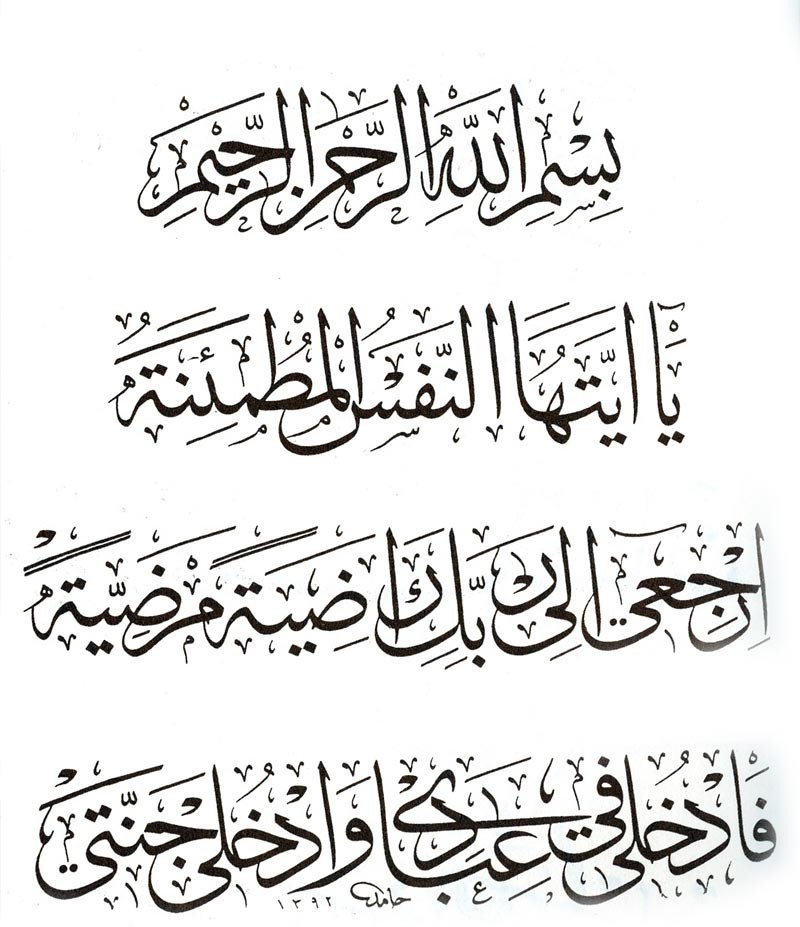 بِسْمِ اللّٰهِ الرَّحْمٰنِ الرَّحِيمِ
يَٓا اَيَّتُهَا النَّفْسُ الْمُطْمَئِنَّةُ
اِرْجِعٓى اِلٰى رَبِّكِ رَاضِيَةً مَرْضِيَّةً
فَادْخُلِى فِى عِبَادِى وَادْخُلِى جَنَّتِى
حامد ١٣٩٢